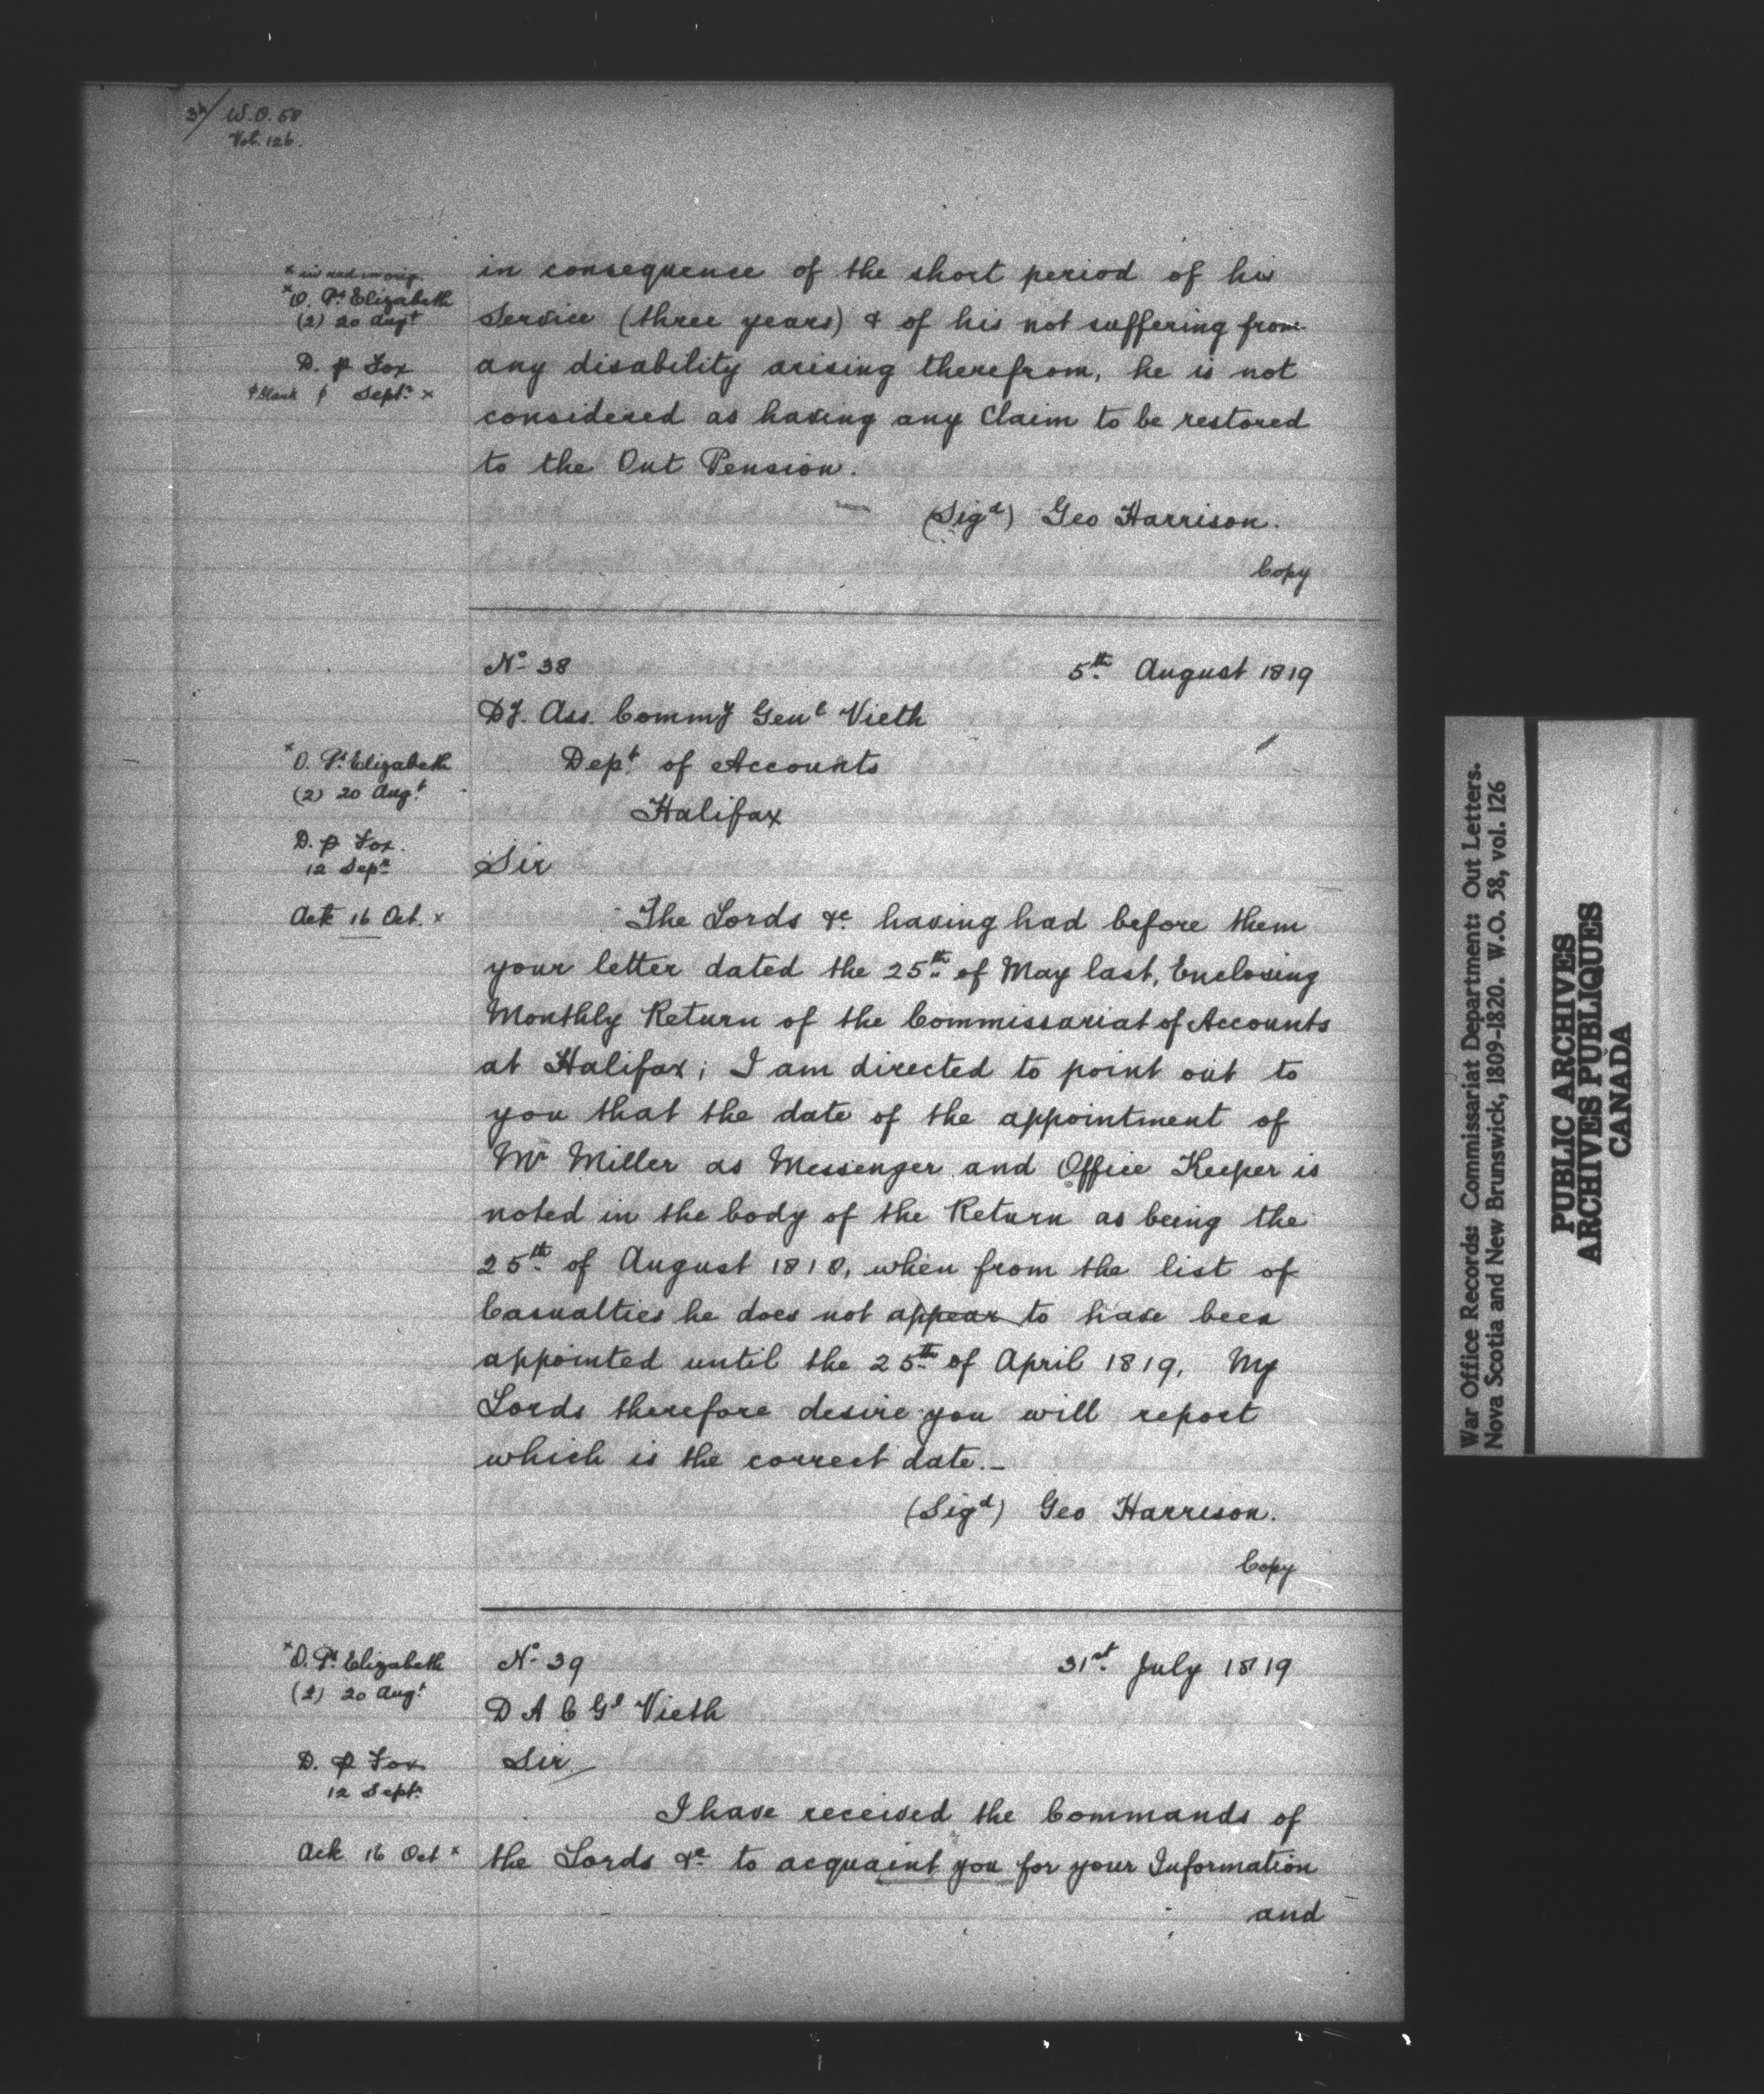 W.O. 58
Vol. 126.
* in red in orig.
* O. Ps Elizabeth
(2) 20 Augt
D. p Fox
Sept. x
in consequence of the short period of his
Service (three years) & of his not suffering from
any disability arising therefrom, he is not
considered as having any Claim to be restored
to the Out Pension.
(Sigd) Geo Harrison.
Copy
No 38 5th August 1819
Dy. Ass. Commy Genl Vieth
Dept of Accounts
Halifax
* O. Ps Elizabeth
(2) 20 Augt
D. p Fox.
12 Sepr
Ack 16 Oct. x
Sir
The Lords &c having had before them
your letter dated the 25th of May last, Enclosing
Monthly Return of the Commissariat of Accounts
at Halifax; I am directed to point out to
you that the date of the appointment of
Mr Miller as Messenger and Office Keeper is
noted in the body of the Return as being the
25th of August 1818, when from the list of
Casualties he does not appear to have been
appointed until the 25th of April 1819, My
Lords therefore desire you will report
which is the correct date.—
(Sigd) Geo Harrison.
Copy
* O. Ps Elizabeth
(2) 20 Augt
D. p Fox
12 Sept.
Ack 16 Oct x
No 39 31st July 1819
D A C Gl Vieth
Sir
I have received the Commands of
the Lords &c to acquaint you for your Information
and
War Office Records: Commissariat Department: Out Letters.
Nova Scotia and New Brunswick, 1809-1820. W.O. 58, vol. 126
PUBLIC ARCHIVES
ARCHIVES PUBLIQUES
CANADA